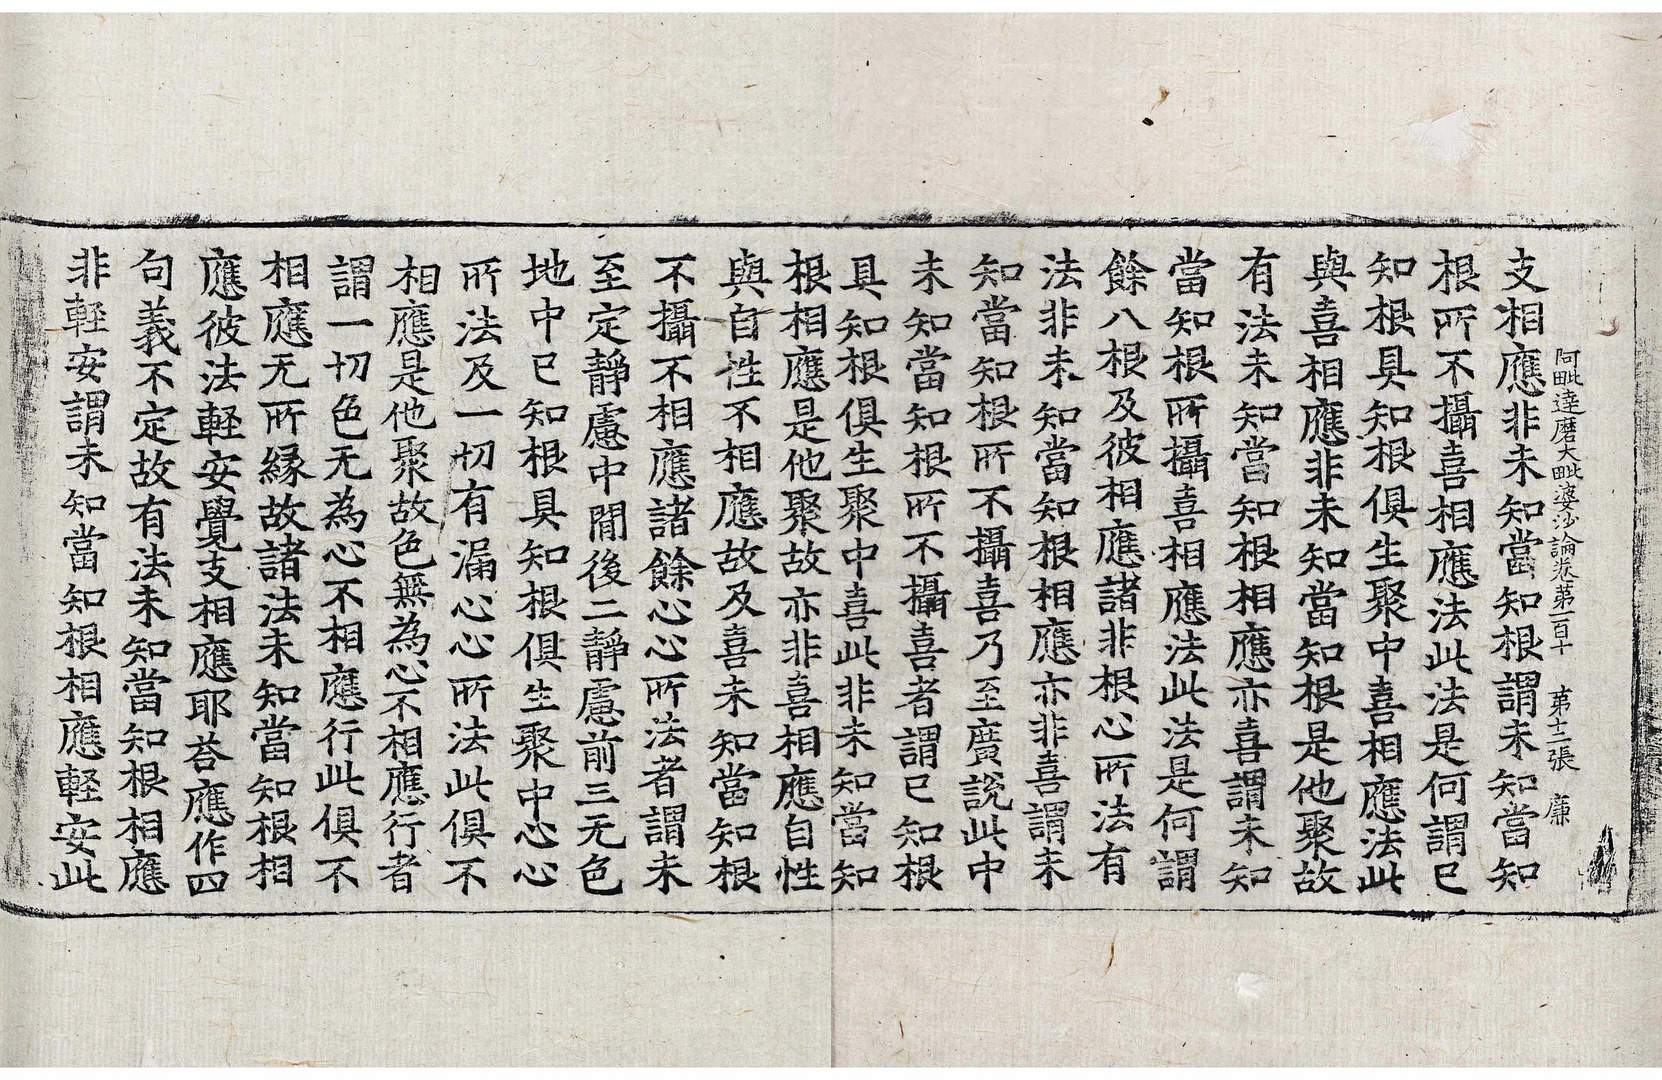 阿毗達磨大毗婆沙論卷第一百十　第十二張　廉
支相應非未知當知根謂未知當知
根所不攝喜相應法此法是何謂已
知根具知根俱生聚中喜相應法此
與喜相應非未知當知根是他聚故
有法未知當知根相應亦喜謂未知
當知根所攝喜相應法此法是何謂
餘八根及彼相應諸非根心所法有
法非未知當知根相應亦非喜謂未
知當知根所不攝喜乃至廣說此中
未知當知根所不攝喜者謂已知根
具知根俱生聚中喜此非未知當知
根相應是他聚故亦非喜相應自性
與自性不相應故及喜未知當知根
不攝不相應諸餘心心所法者謂未
至定靜慮中間後二靜慮前三无色
地中已知根具知根俱生聚中心心
所法及一切有漏心心所法此俱不
相應是他聚故色無為心不相應行者
謂一切色无為心不相應行此俱不
相應无所緣故諸法未知當知根相
應彼法軽安覺支相應耶荅應作四
句義不定故有法未知當知根相應
非軽安謂未知當知根相應軽安此